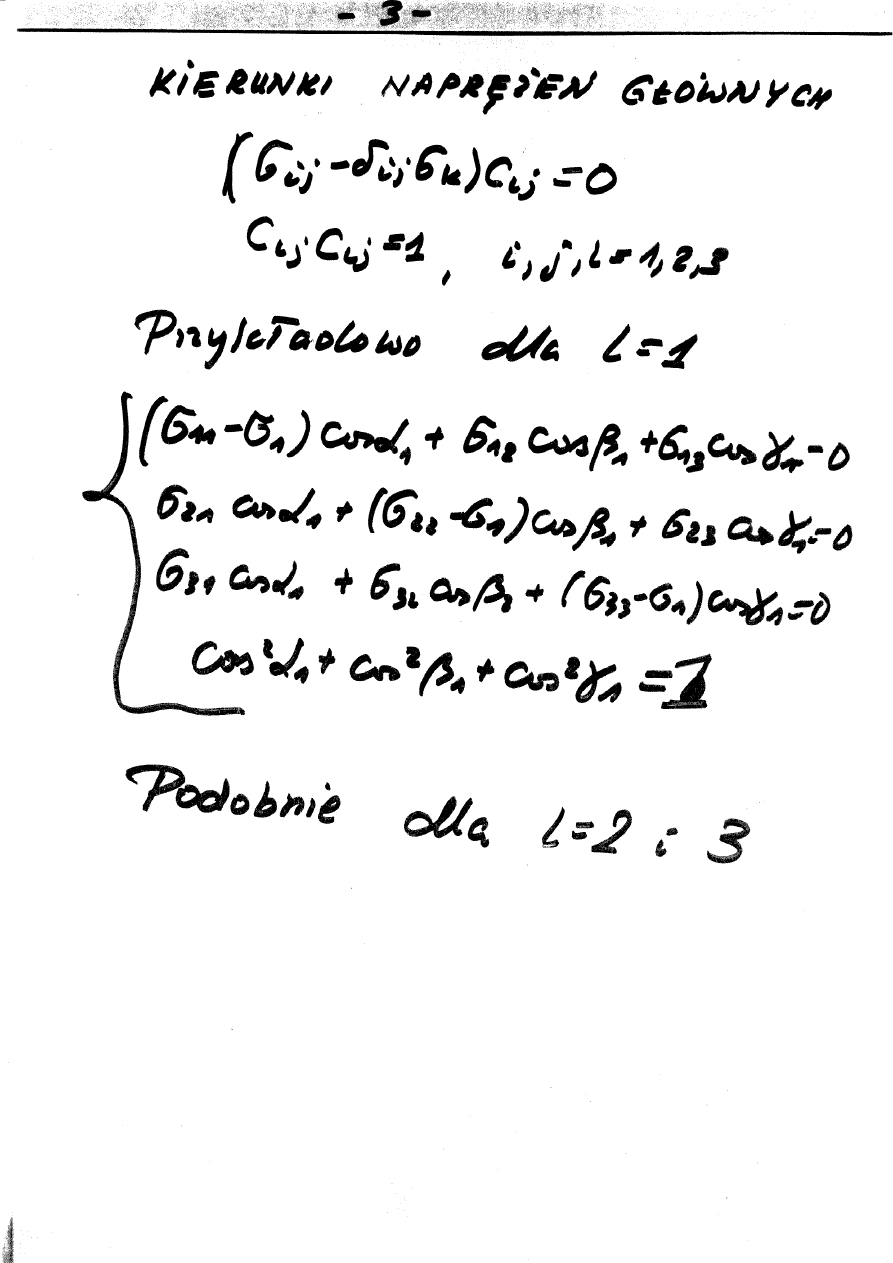 - 3 -
KIERUNKI NAPRĘŻEŃ GŁÓWNYCH
(σij - δij σk) Clj = 0
Clj Clj = 1, i, j, l = 1, 2, 3
Przykładowo dla l = 1
(σ11 - σ1) cosα1 + σ12 cosβ1 + σ13 cosγ1 = 0
σ21 cosα1 + (σ22 - σ1) cosβ1 + σ23 cosγ1 = 0
σ31 cosα1 + σ32 cosβ2 + (σ33 - σ1) cosγ1 = 0
cos²α1 + cos²β1 + cos²γ1 = 1
Podobnie dla l = 2 i 3